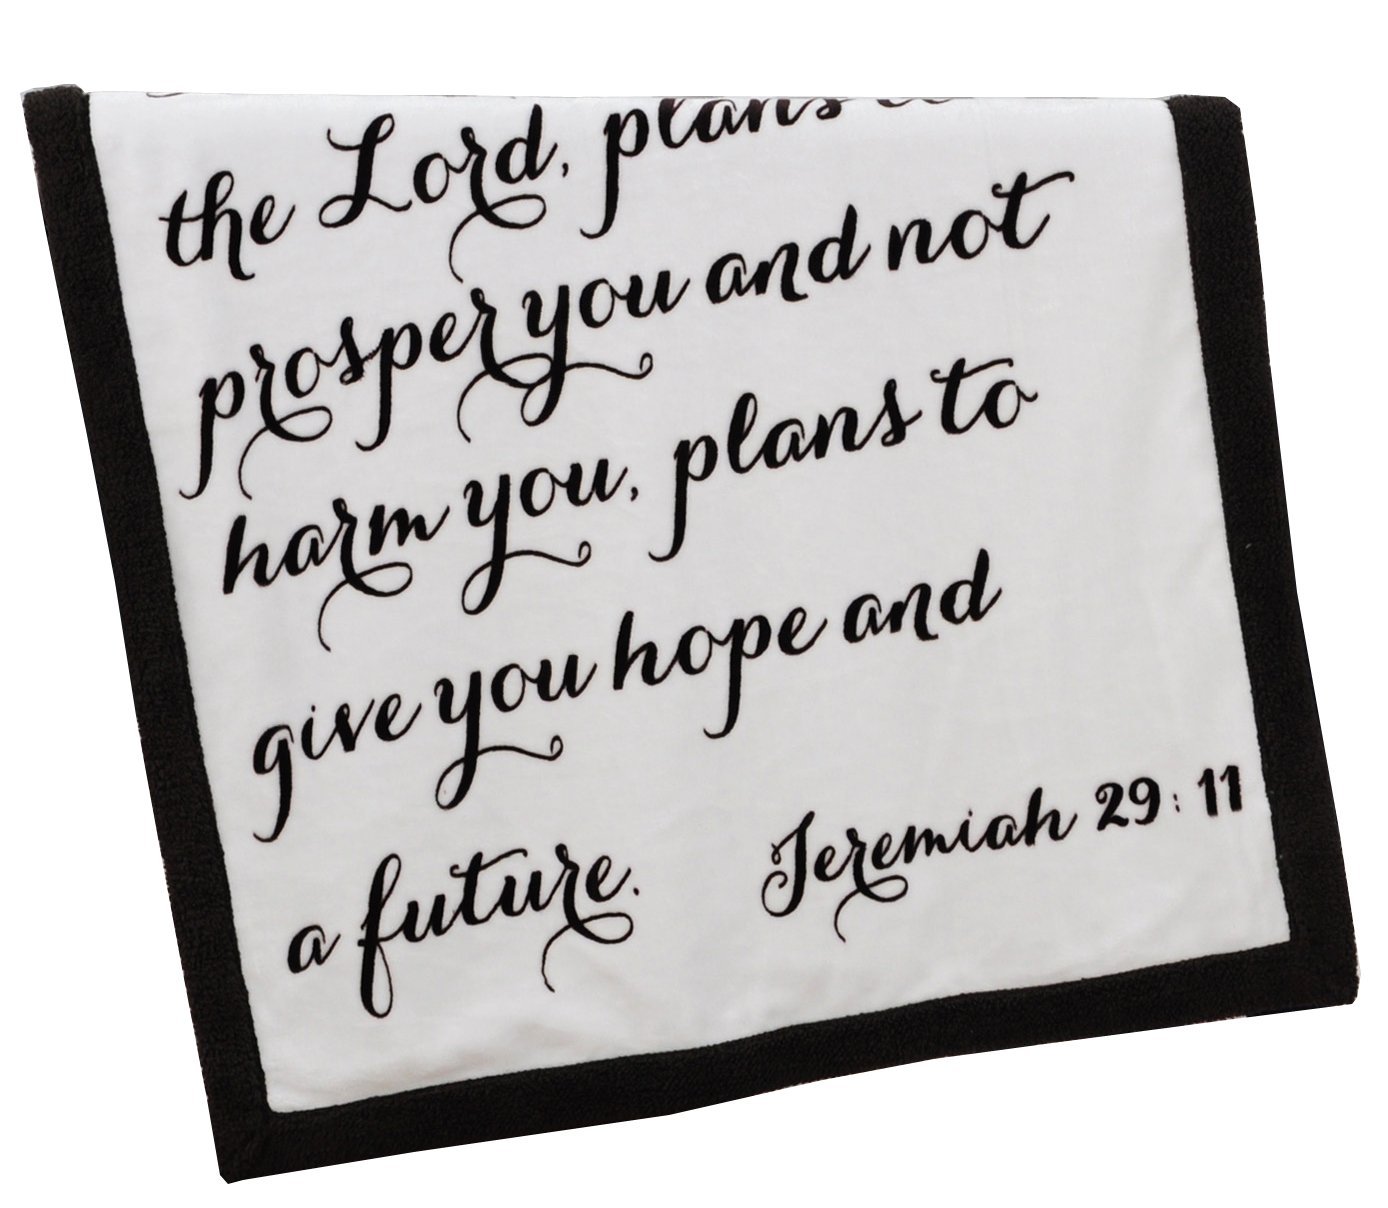 the Lord, plans to
prosper you and not
harm you, plans to
give you hope and
a future.
Jeremiah 29:11